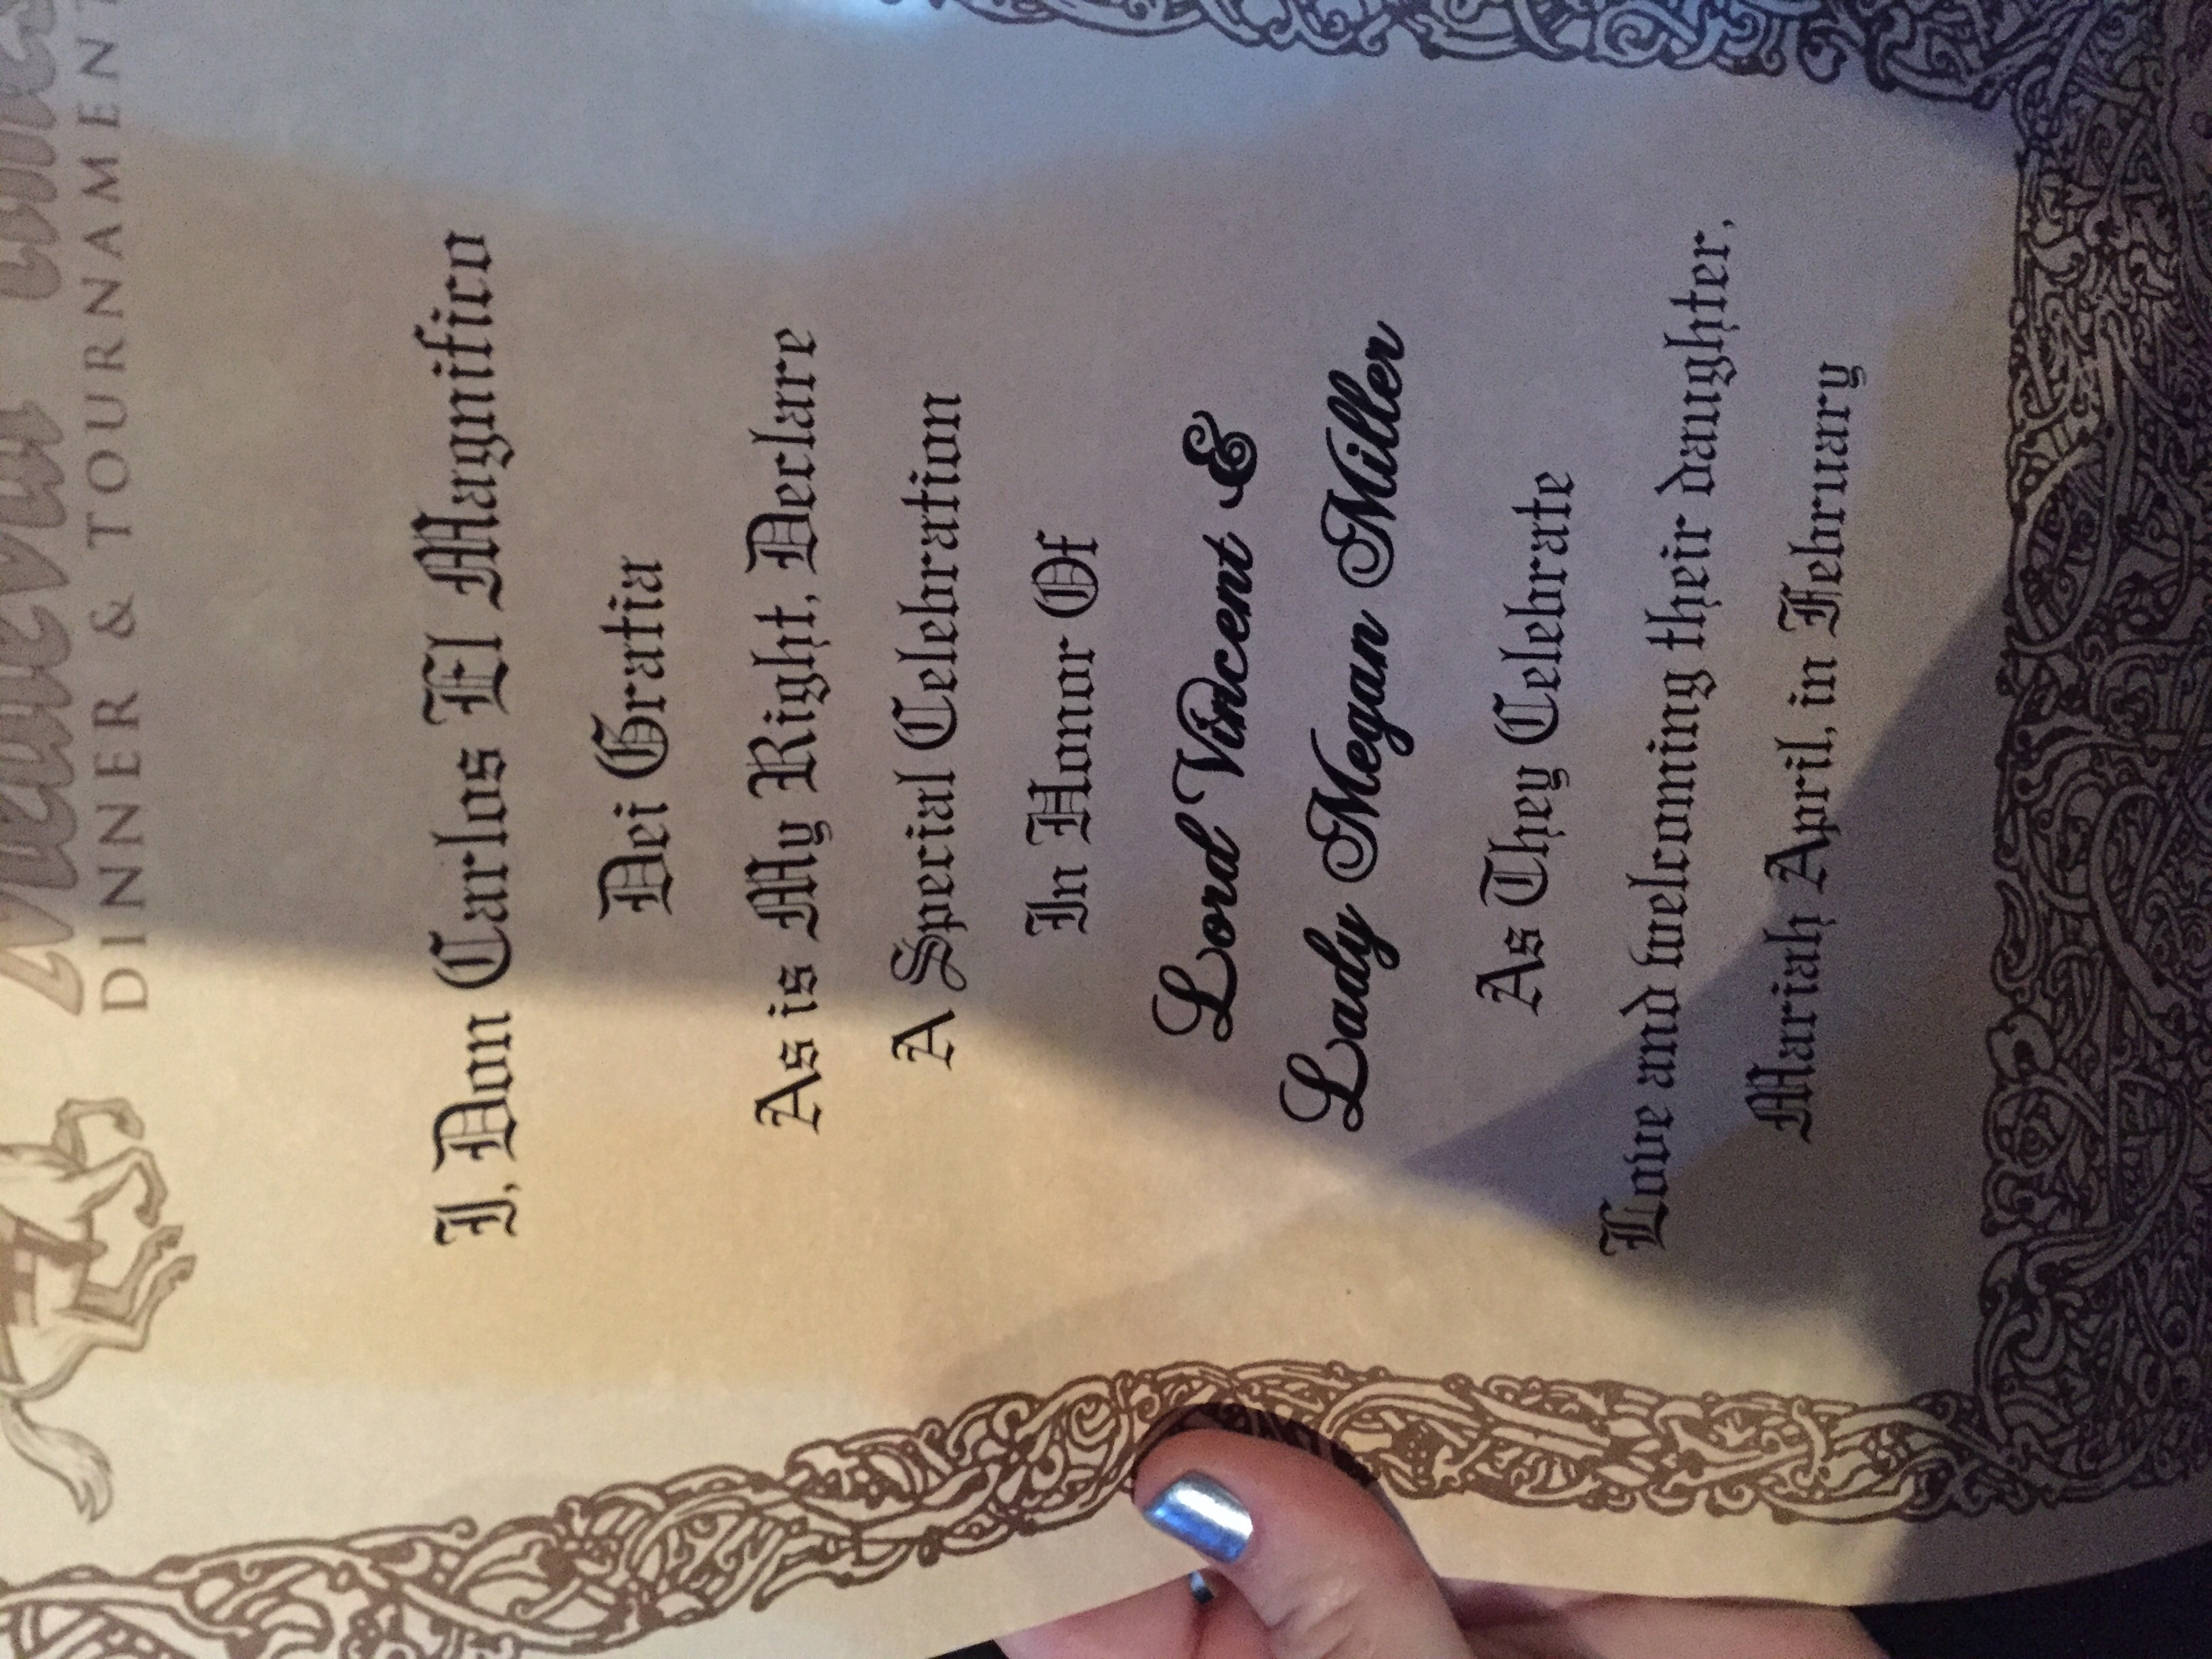 DINNER & TOURNAMENT
I, Don Carlos El Magnifico
Dei Gratia
As is My Right, Declare
A Special Celebration
In Honor Of
Lord Vincent &
Lady Megan Miller
As They Celebrate
Love and welcoming their daughter,
Mariah April, in February